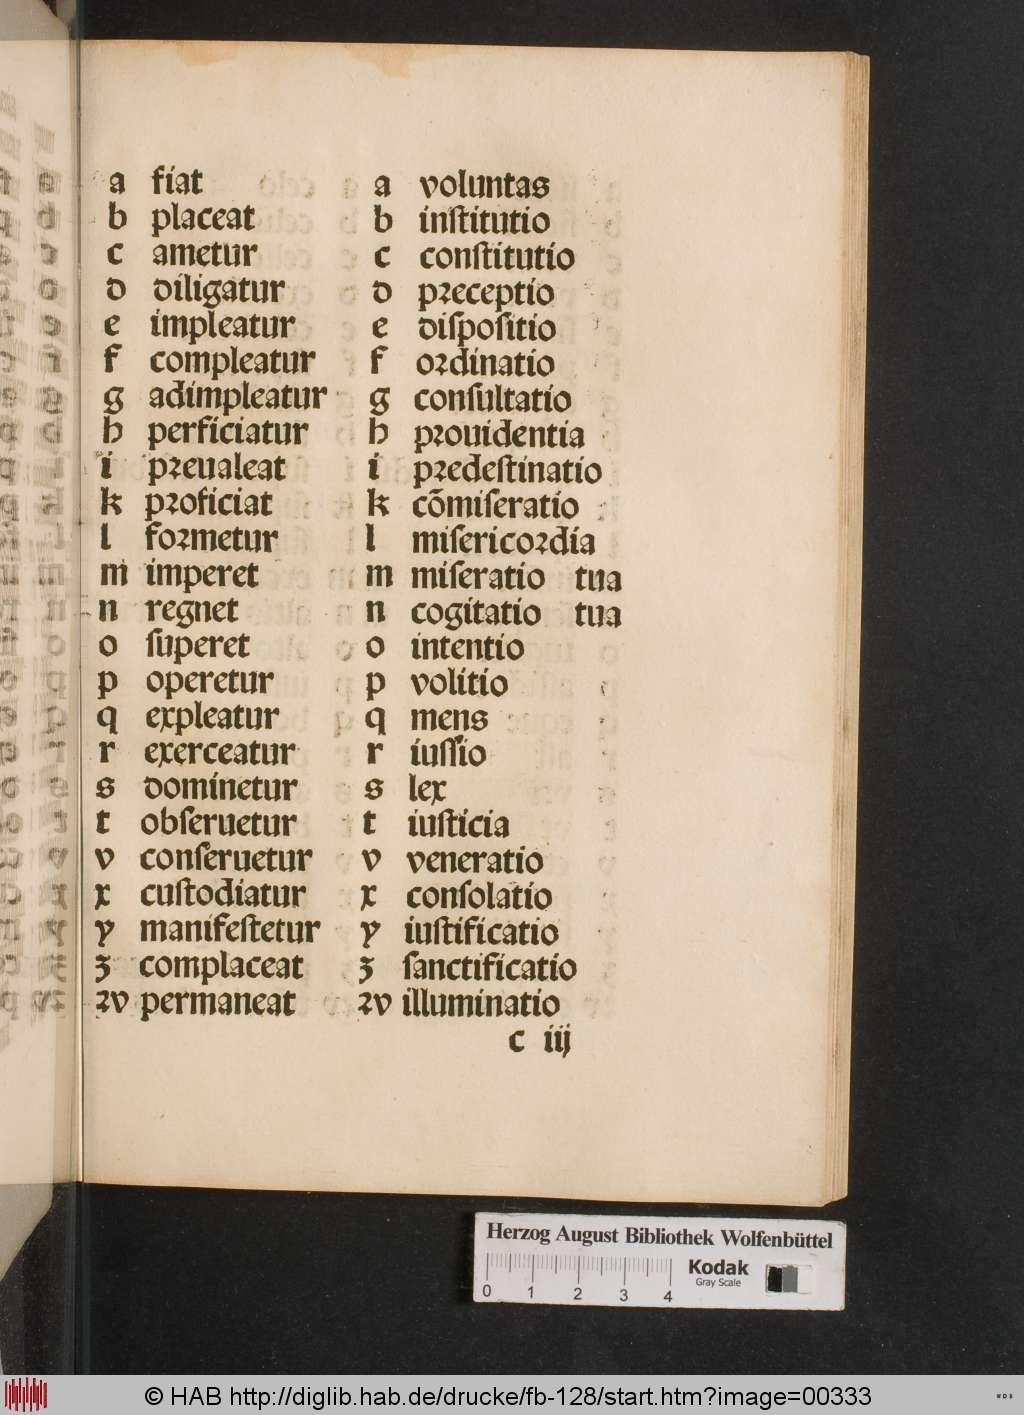 a fiat a voluntas
b placeat b inſtitutio
c ametur c conſtitutio
d diligatur d pꝛeceptio
e impleatur e diſpoſitio
f compleatur f oꝛdinatio
g adimpleatur g conſultatio
h perficiatur h pꝛouidentia
i pꝛeualeat i pꝛedeſtinatio
k pꝛoficiat k cōmiſeratio
l foꝛmetur l miſericoꝛdia
m imperet m miſeratio tua
n regnet n cogitatio tua
o ſuperet o intentio
p operetur p volitio
q expleatur q mens
r exerceatur r iuſſio
s dominetur s lex
t obſeruetur t iuſticia
v conſeruetur v veneratio
x cuſtodiatur x conſolatio
y manifeſtetur y iuſtificatio
ʒ complaceat ʒ ſanctificatio
ꝛv permaneat ꝛv illuminatio
c iij
Herzog August Bibliothek Wolfenbüttel
Kodak
Gray Scale
0 1 2 3 4
© HAB http://diglib.hab.de/drucke/fb-128/start.htm?image=00333